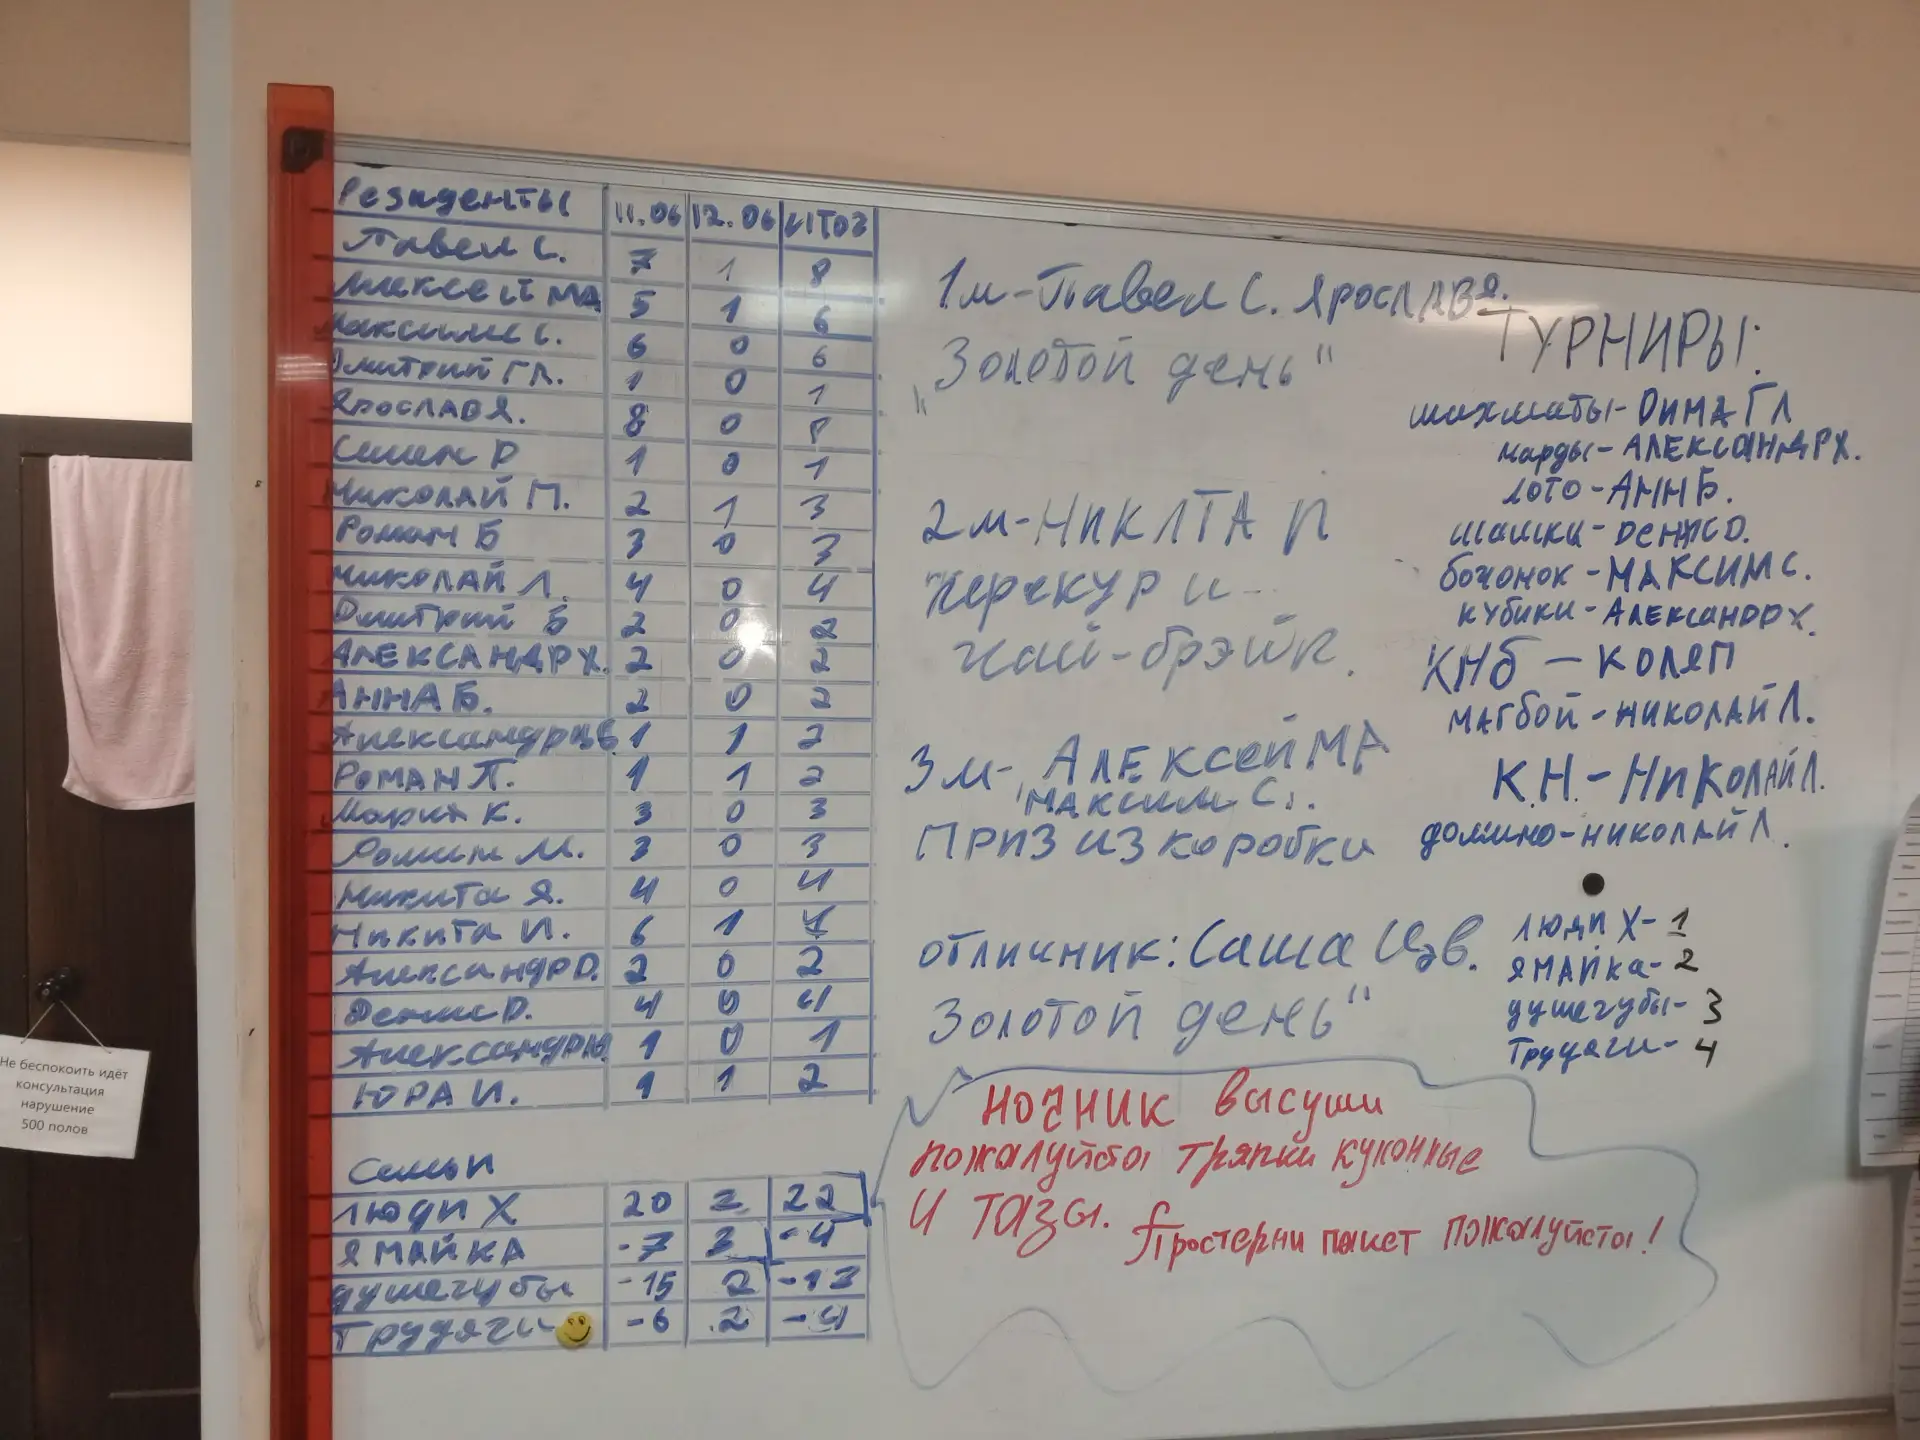 Резиденты 11.06 12.06 Итог
Павел С. 7 1 8
Алексей МА 5 1 6
Максим С. 6 0 6
Дмитрий ГЛ. 1 0 1
Ярослав Я. 8 0 8
Семен D 1 0 1
Николай П. 2 1 3
Роман Б 3 0 3
Николай Л. 4 0 4
Дмитрий Б 2 0 2
АЛЕКСАНДР Х. 2 0 2
АННА Б. 2 0 2
Александр Цв. 1 1 2
РОМАН П. 1 1 2
Мария К. 3 0 3
Роман М. 3 0 3
Никита Я. 4 0 4
Никита И. 6 1 7
Александр D. 2 0 2
Денис D. 4 0 4
Александр Ю 1 0 1
ЮРА И. 1 1 2
Семьи
ЛЮДИ Х 20 2 22
ЯМАЙКА -7 3 -4
душегубы -15 2 -13
Трудяги -6 2 -4
1м-Павел С. Ярослав Я.
„Золотой день"
2м-НИКИТА И
перекур и
чай-брэйк.
3м- АЛЕКСЕЙ МА
МАКСИМ С.
ПРИЗ ИЗ коробки
отличник: Саша Цв.
Золотой день"
ТУРНИРЫ:
шахматы- ДИМА ГЛ
нарды- АЛЕКСАНДР Х.
лото - АНН Б.
шашки- DЕНИС D.
бочонок - МАКСИМ С.
кубики- АЛЕКСАНДР Х.
КНБ — КОЛЯ П
МАГБОЙ - НИКОЛАЙ Л.
К.Н. - НИКОЛАЙ Л.
домино- НИКОЛАЙ Л.
ЛЮДИ Х- 1
ЯМАЙКА- 2
душегубы- 3
Трудяги- 4
НОЧНИК высуши
пожалуйста тряпки кухонные
И ТАЗЫ. Простерни пакет пожалуйста!
Не беспокоить идёт
консультация
нарушение
500 полов